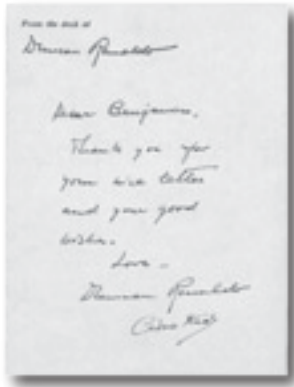 From the desk of
Duncan Renaldo
Dear Benjamin,
Thank you for
your nice letter
and your good
wishes.
Love -
Duncan Renaldo
Cisco Kid